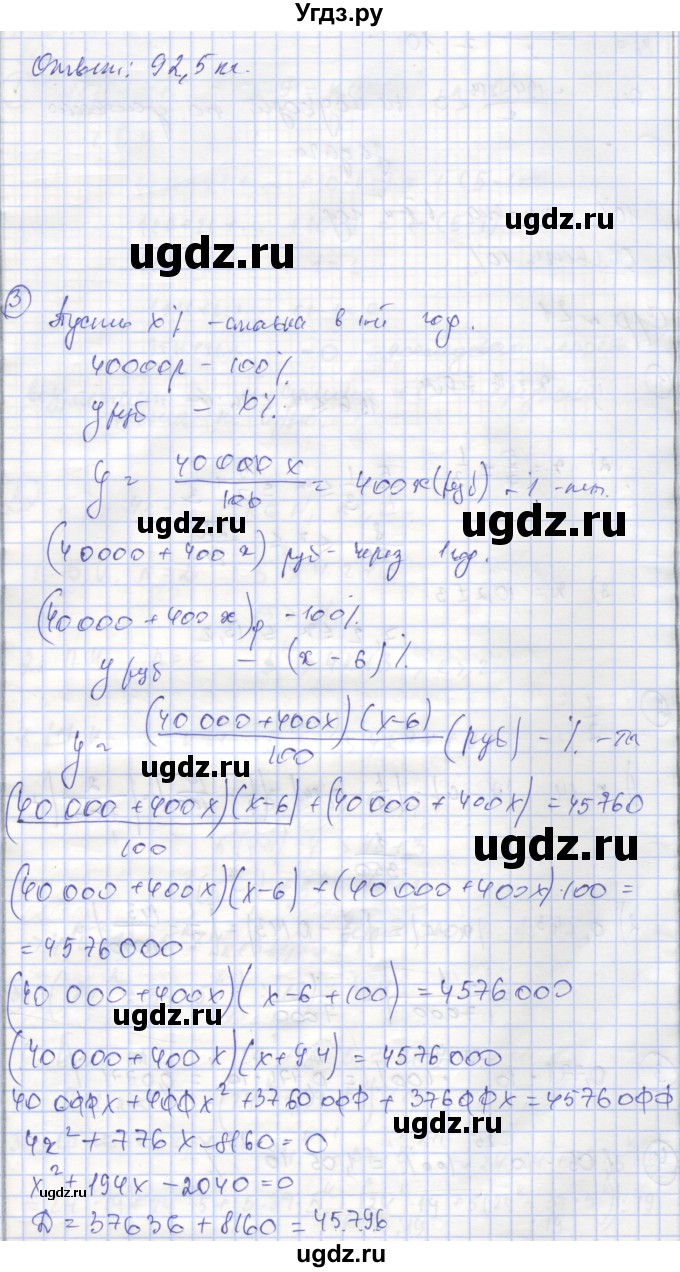 Угдз.ру
Ответ: 92,5 кг.
ugdz.ru
ugdz.ru
3 Пусть x% - ставка в 1ый год.
40000р - 100%
y руб - x%
y = 40 000 x / 100 = 400x (руб) - % -
ugdz.ru
ugdz.ru
(40000 + 400x) руб - через 1 год.
(40000 + 400x)р - 100%
ugdz.ru
y руб - (x - 6)%
y = (40 000 + 400x)(x-6) / 100 (руб) - % - ты
ugdz.ru
(40 000 + 400x)(x-6) / 100 + (40000 + 400x) = 45760
ugdz.ru
(40 000 + 400x)(x-6) + (40000 + 400x)·100 =
= 4576000
(40 000 + 400x)(x - 6 + 100) = 4576000
ugdz.ru
(40 000 + 400x)(x + 94) = 4576000
40 000x + 400x² + 3760 000 + 37600x = 4576 000
ugdz.ru
4x² + 776x - 8160 = 0
x² + 194x - 2040 = 0
D = 37636 + 8160 = 45796
ugdz.ru
ugdz.ru